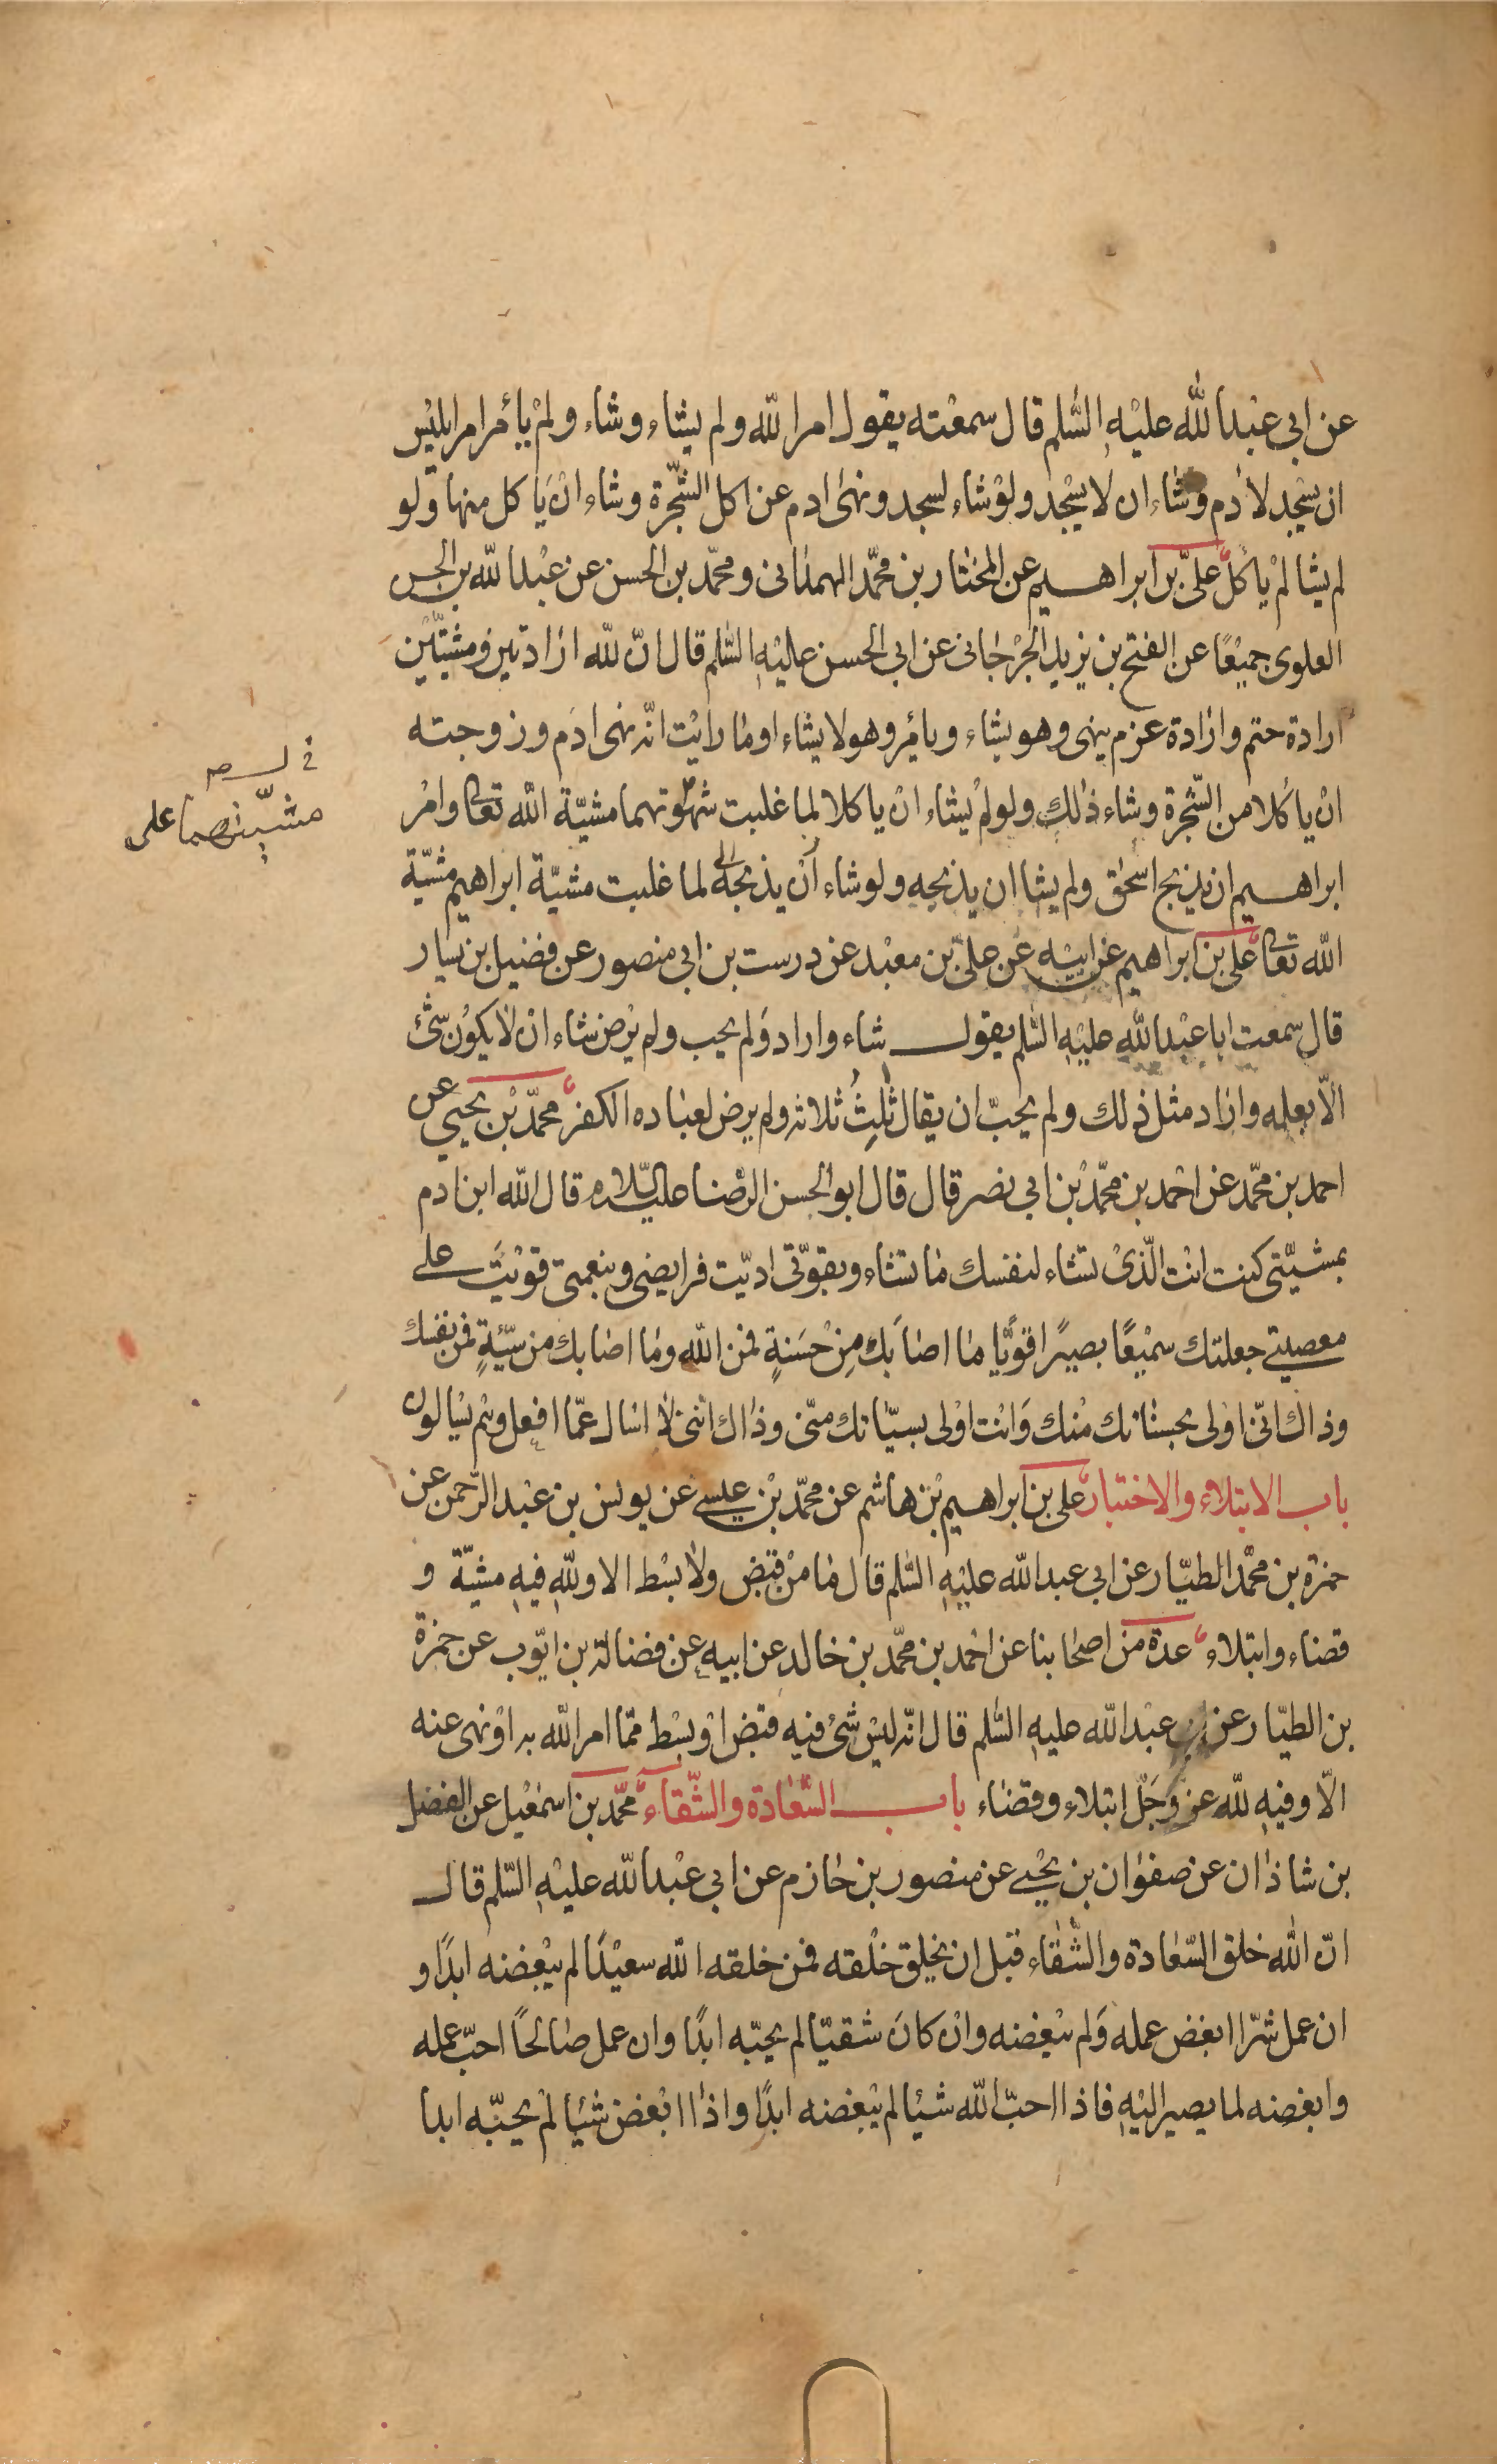 عن ابي عبد الله عليه السلم قال سمعته يقول امر الله ولم يشاء وشاء ولم يأمر امر ابليس
ان يسجد لادم وشاء ان لا يسجد ولو شاء لسجد ونهى ادم عن اكل الشجرة وشاء ان ياكل منها ولو
لم يشا لم ياكل على بن ابراهيم عن المختار بن محمد الهمدانى ومحمد بن الحسن عن عبد الله بن الحسن
العلوى جميعا عن الفتح بن يزيد الجرجانى عن ابى الحسن عليه السلم قال ان لله ارادتين ومشيتين
ارادة حتم وارادة عزم ينهى وهو يشاء ويأمر وهو لا يشاء او ما رايت انه نهى ادم وزوجته
ان يأكلا من الشجرة وشاء ذلك ولو لم يشاء ان ياكلا لما غلبت شهوتهما مشية الله تعالى وامر
ابراهيم ان يذبح اسحق ولم يشا ان يذبحه ولو شاء أن يذبحه لما غلبت مشية ابراهيم مشية
الله تعالى على بن ابراهيم عن ابيه عن على بن معبد عن درست بن ابى منصور عن فضيل بن يسار
قال سمعت ابا عبد الله عليه السلم يقول شاء واراد ولم يحب ولم يرض شاء ان لا يكون شئ
الا بعلمه واراد مثل ذلك ولم يحب ان يقال ثلث ثلاثه ولم يرض لعباده الكفر محمد بن يحيى عن
احمد بن محمد عن احمد بن محمد بن ابي نصر قال قال ابو الحسن الرضا عليه السلام قال الله ابن ادم
بمشيتى كنت انت الذى تشاء لنفسك ما تشاء وبقوتى اديت فرايضى وبنعمتى قويت على
معصيتى جعلتك سميعا بصيرا قويا ما اصابك من حسنة فمن الله وما اصابك من سيئة فمن نفسك
وذاك انى اولى بحسناتك منك وانت اولى بسياتك منى وذاك اننى لا اسال عما افعل وهم يسالون
باب الابتلاء والاختبار على بن ابراهيم بن هاشم عن محمد بن عيسى عن يونس بن عبد الرحمن عن
حمزة بن محمد الطيار عن ابى عبد الله عليه السلم قال ما من قبض ولا بسط الا ولله فيه مشية و
قضاء وابتلاء عدة من اصحابنا عن احمد بن محمد بن خالد عن ابيه عن فضالة بن ايوب عن حمزة
بن الطيار عن ابى عبد الله عليه السلم قال انه ليس شئ فيه قبض او بسط مما امر الله به او نهى عنه
الا وفيه لله عز وجل ابتلاء وقضاء باب السعادة والشقاء محمد بن اسمعيل عن الفضل
بن شاذان عن صفوان بن يحيى عن منصور بن حازم عن ابي عبد الله عليه السلم قال
ان الله خلق السعادة والشقاء قبل ان يخلق خلقه فمن خلقه الله سعيدا لم يبغضه ابدا و
ان عمل شرا ابغض عمله ولم يبغضه وان كان شقيا لم يحبه ابدا وان عمل صالحا احب عمله
وابغضه لما يصير اليه فاذا احب الله شيئا لم يبغضه ابدا واذا ابغض شيئا لم يحبه ابدا
مشيتهما على